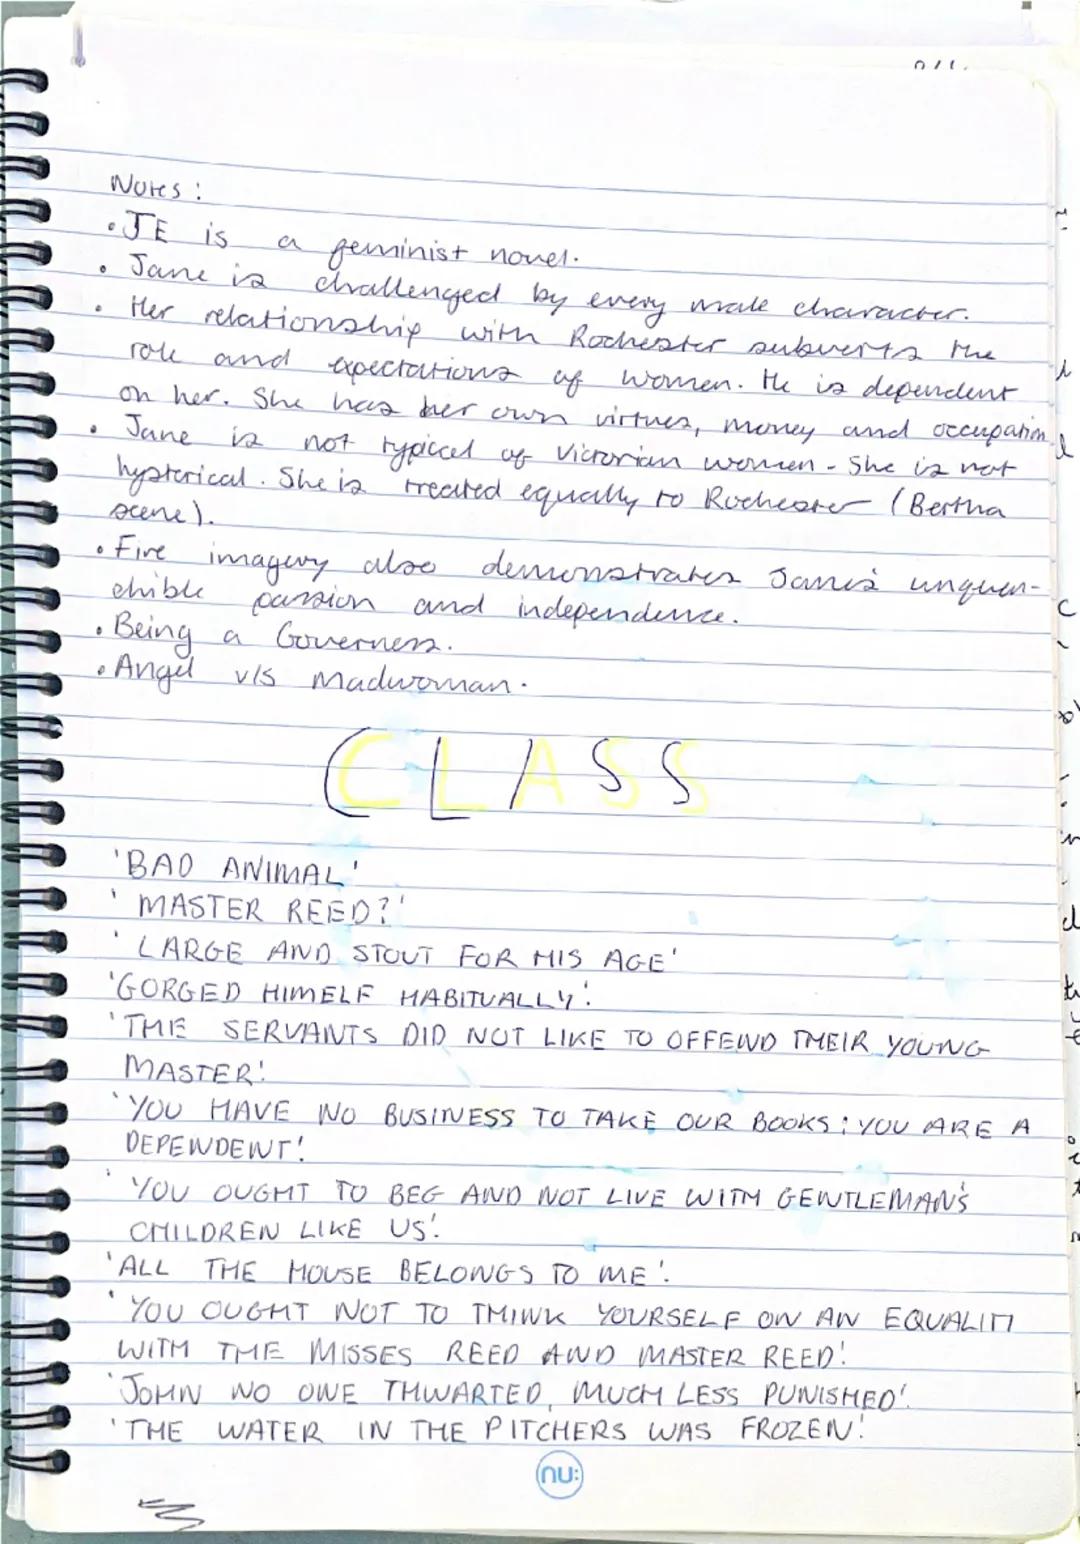 Notes:
• JE is a feminist novel.
• Jane is challenged by every male character.
• Her relationship with Rochester subverts the
role and expectations of women. He is dependent
on her. She has her own virtues, money and occupation.
• Jane is not typical of Victorian women - She is not
hysterical. She is treated equally to Rochester (Bertha
scene).
• Fire imagery also demonstrates Jane's unquen-
chible passion and independence.
• Being a Governess.
• Angel v/s Madwoman.
CLASS
'BAD ANIMAL'
'MASTER REED?'
'LARGE AND STOUT FOR HIS AGE'
'GORGED HIMELF HABITUALLY'.
'THE SERVANTS DID NOT LIKE TO OFFEND THEIR YOUNG
MASTER'.
'YOU HAVE NO BUSINESS TO TAKE OUR BOOKS; YOU ARE A
DEPENDENT'.
'YOU OUGHT TO BEG AND NOT LIVE WITH GENTLEMAN'S
CHILDREN LIKE US'.
'ALL THE HOUSE BELONGS TO ME'.
'YOU OUGHT NOT TO THINK YOURSELF ON AN EQUALITY
WITH THE MISSES REED AND MASTER REED'.
'JOHN NO ONE THWARTED, MUCH LESS PUNISHED'.
'THE WATER IN THE PITCHERS WAS FROZEN'.
nu: